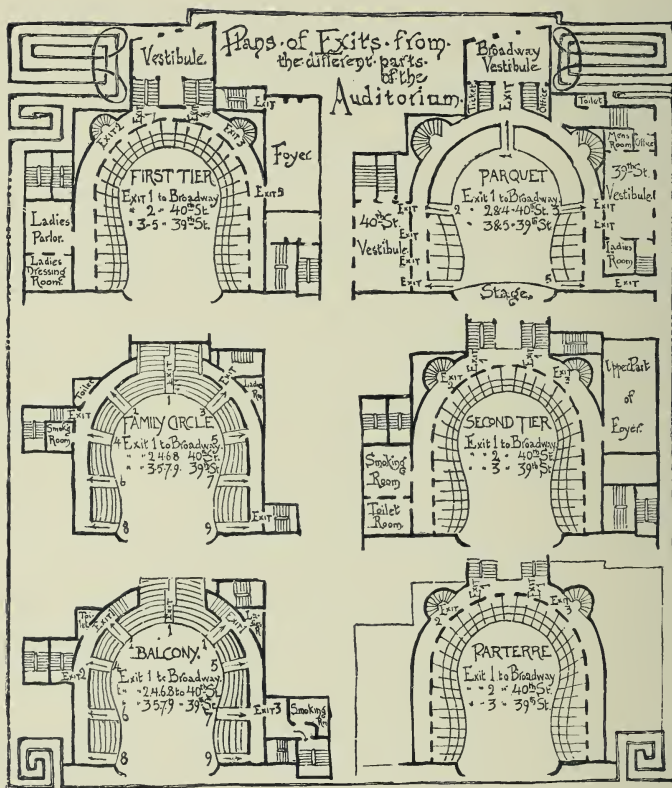 Plans of Exits from
the different parts
of the
Auditorium.
Vestibule.
EXIT
EXIT 2
1
Exit 3
Foyer
FIRST TIER
Exit 1 to Broadway
" 2 " 40th St.
" 3-5 " 39th St.
EXIT 5
Ladies
Parlor.
Ladies
Dressing
Room.
Broadway
Vestibule.
Ticket
EXIT
Office
Toilet
Mens
Room
Office
39th St.
Vestibule
Ladies
Room
PARQUET
Exit 1 to Broadway
" 2&4 " 40th St.
" 3&5 " 39th St.
2
3
EXIT
EXIT
EXIT
EXIT
40th St.
Vestibule
EXIT
EXIT
5
EXIT
Stage.
Toilet
EXIT
EXIT
Smoking
Room
EXIT
1
2
3
FAMILY CIRCLE
Exit 1 to Broadway.
" 2.4.6.8 40th St.
" 3.5.7.9. 39th St.
4
5
6
7
8
9
EXIT
EXIT
1
1
EXIT
2
Upper Part
of
Foyer.
SECOND TIER
Exit 1 to Broadway.
" 2 " 40th St.
" 3 " 39th St.
Smoking
Room
Toilet
Room
EXIT
1
BALCONY.
Exit 1 to Broadway.
" 2.4.6.8 to 40th St.
" 3.5.7.9 " 39th St.
EXIT 2
4
5
6
7
8
9
EXIT 3
Smoking
Rm
EXIT
2
EXIT
3
PARTERRE
Exit 1 to Broadway
" 2 " 40th St.
" 3 " 39th St.